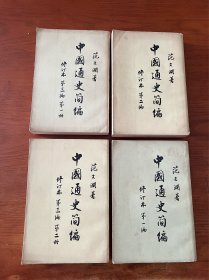 范文瀾著
中國通史简编
修订本 第三编 第一册
范文瀾著
中國通史简编
修订本 第二编
范文瀾著
中國通史简编
修订本 第三编 第二册
范文瀾著
中國通史简编
修订本 第一编